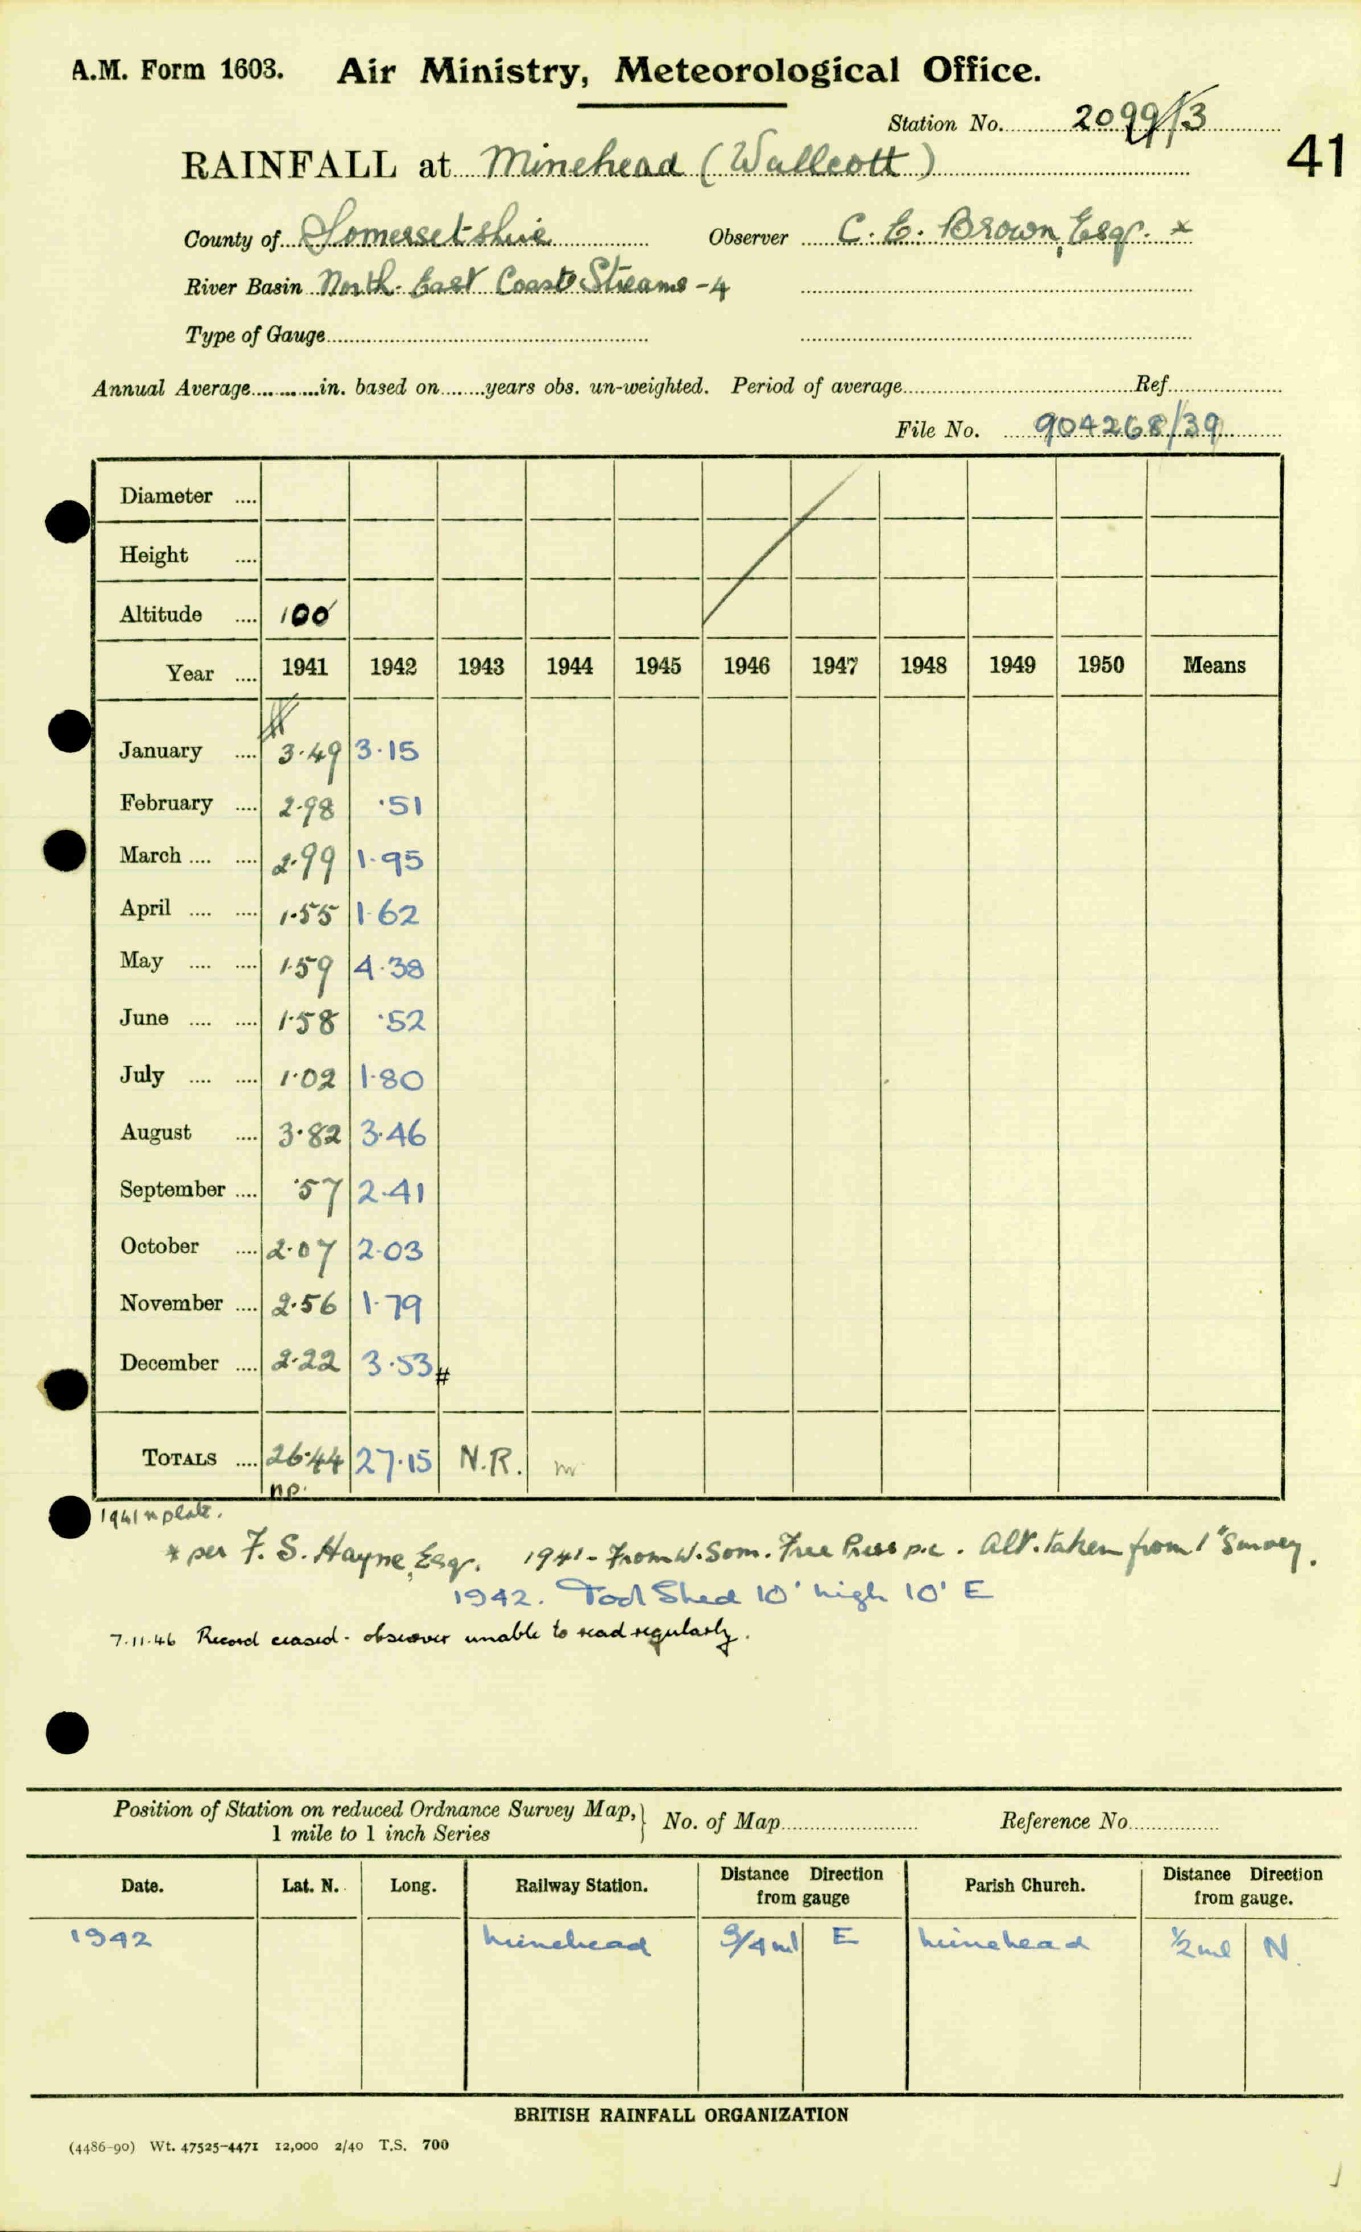 A.M. Form 1603. Air Ministry, Meteorological Office.
Station No. 2099/13
41
RAINFALL at Minehead (Wallcott)
County of Somersetshire Observer C. E. Brown, Esqr. *
River Basin North East Coast Streams - 4
Type of Gauge
Annual Average in. based on years obs. un-weighted. Period of average Ref.
File No. 904268/39
Diameter
Height
Altitude 100
Year 1941 1942 1943 1944 1945 1946 1947 1948 1949 1950 Means
January 3.49 3.15
February 2.98 .51
March 2.99 1.95
April 1.55 1.62
May 1.59 4.38
June 1.58 .52
July 1.02 1.80
August 3.82 3.46
September .57 2.41
October 2.07 2.03
November 2.56 1.79
December 2.22 3.53 #
TOTALS 26.44 27.15 N.R.
np.
1941 n plate.
* per F. S. Hayne, Esqr. 1941 - From W. Som. Free Press p.c. Alt. taken from 1" Survey.
1942. Tool Shed 10' high 10' E
7.11.46 Record ceased - observer unable to read regularly.
Position of Station on reduced Ordnance Survey Map, } No. of Map Reference No.
1 mile to 1 inch Series
Date. Lat. N. Long. Railway Station. Distance Direction from gauge Parish Church. Distance Direction from gauge.
1942 Minehead 3/4 ml E Minehead 1/2 ml N.
BRITISH RAINFALL ORGANIZATION
(4486-90) Wt. 47525-4471 12,000 2/40 T.S. 700